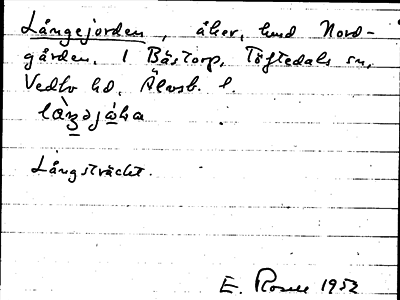 Långejorden, åker, hmd Nord-
gården, 1 Bästorp, Töftedals sn,
Vedbo hd, Älvsb. l.
Långsträckt.
E. 1952